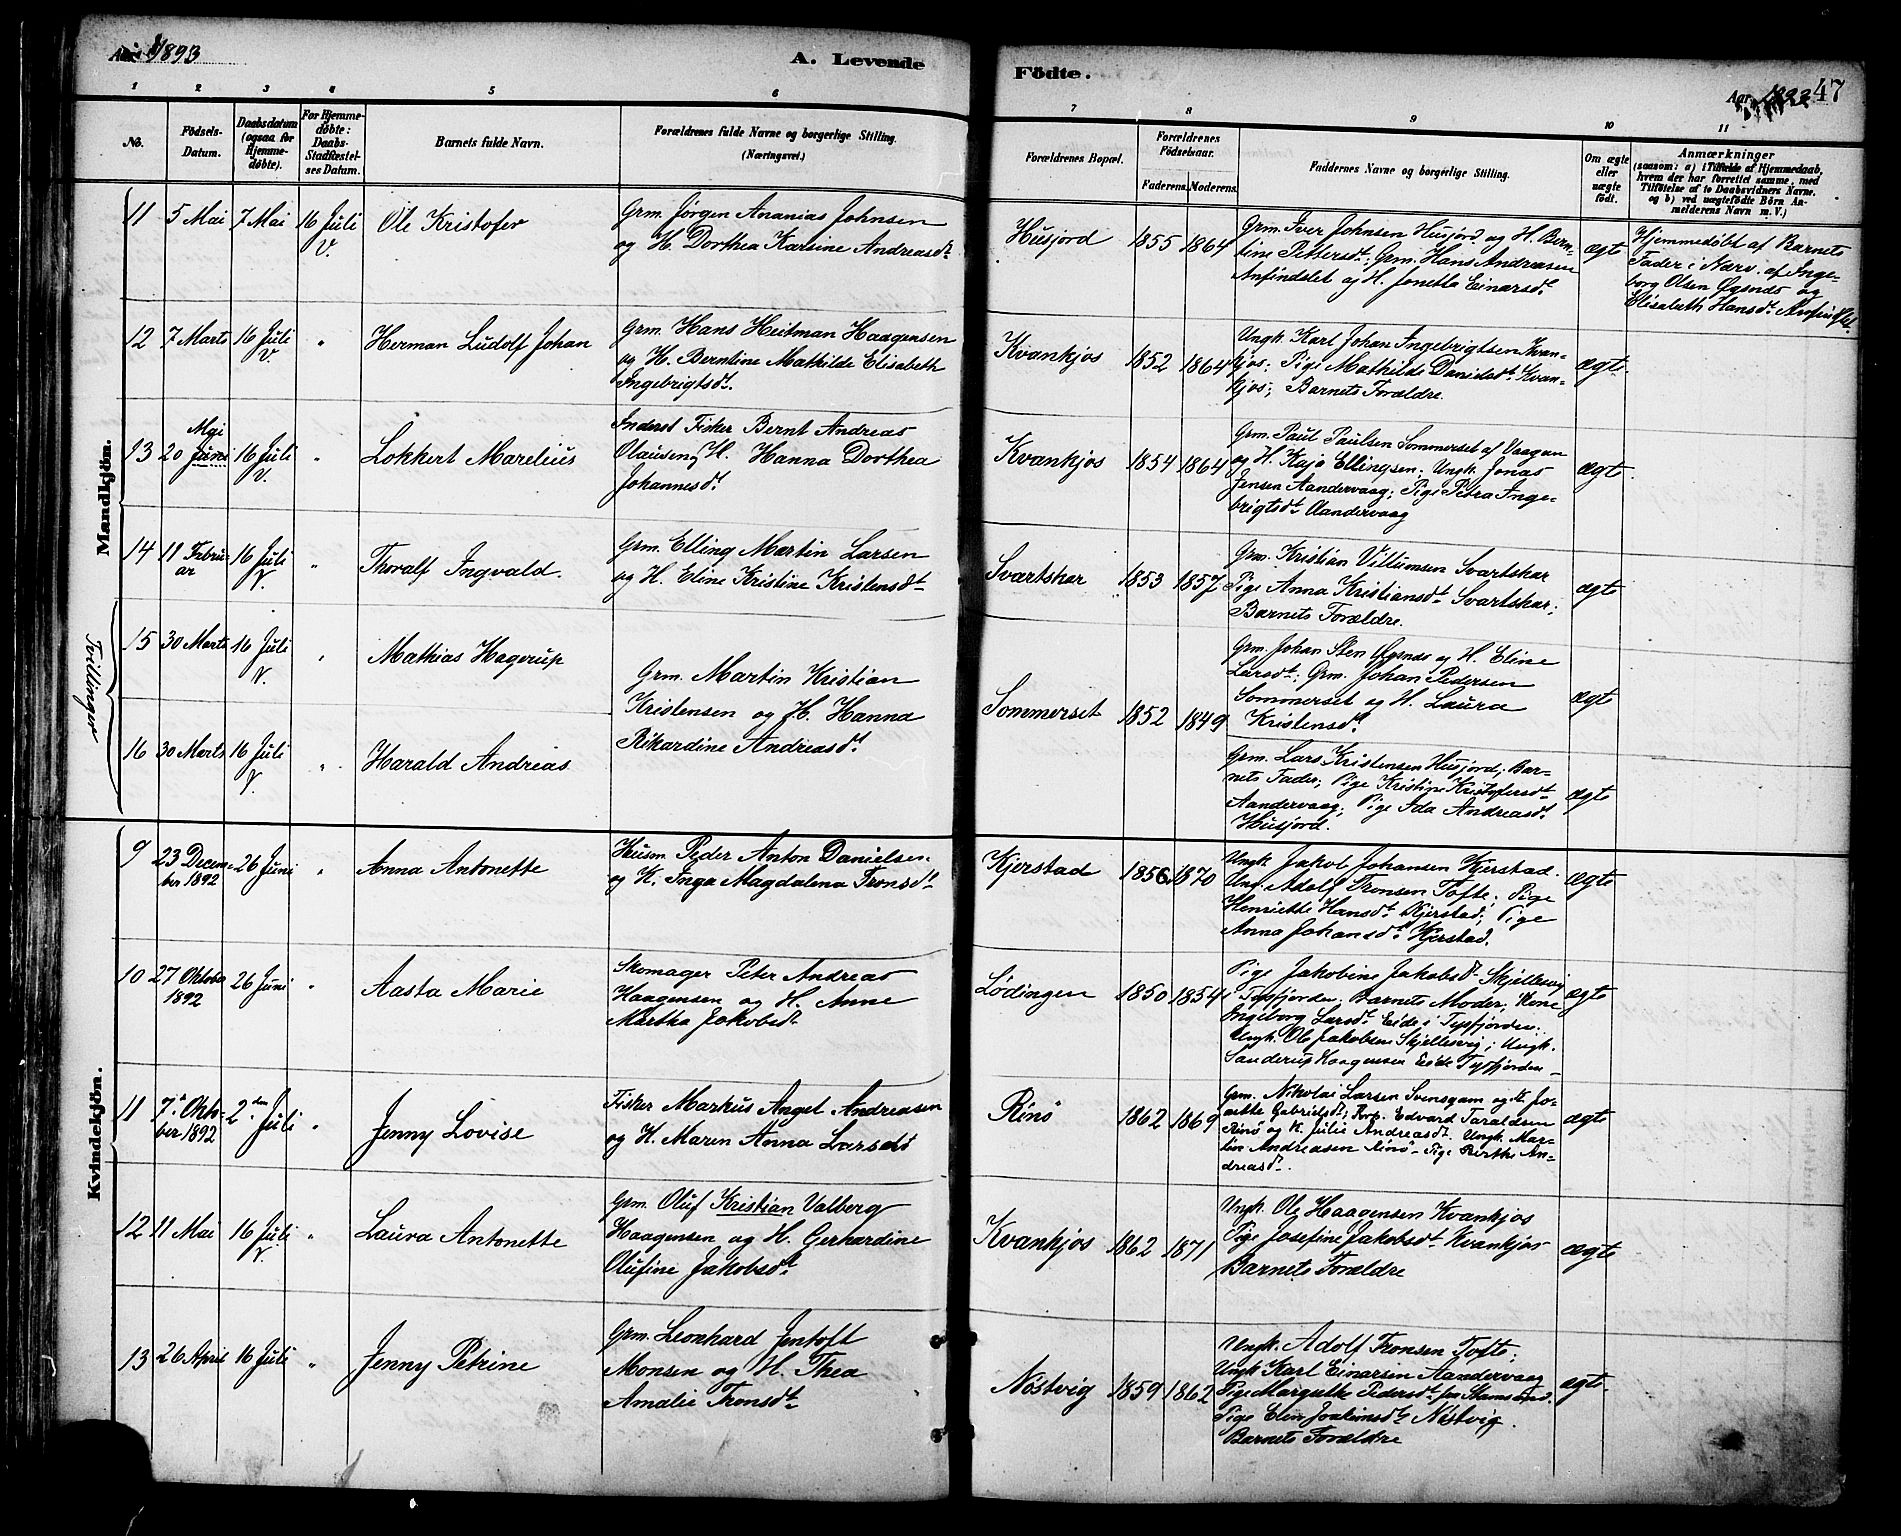 Aar 1893
A. Levende
Födte.
Aar 1893
47
1 2 3 4 5 6
7 8 9 10 11
No.
Födsels-Datum.
Daabsdatum (ogsaa for Hjemmedöbte).
For Hjemmedöbte: Daabs-Stadfæstelses Datum.
Barnets fulde Navn.
Forældrenes fulde Navne og borgerlige Stilling.
(Næringsvei.)
Forældrenes Bopæl.
Forældrenes Födselsaar.
Faderens. Moderens.
Faddernes Navne og borgerlige Stilling.
Om ægte eller uægte födt.
Anmærkninger
(saasom: a) i Tilfælde af Hjemmedaab, hvem der har forrettet samme, med Tilföielse af to Daabsvidners Navne, og b) ved uægtefödte Börn Anmelderens Navn m. V.)
Mandkjön.
11 5 Mai 7 Mai 16 Juli V. Ole Kristofer
Grm. Jörgen Ananias Johnsen
og H. Dorthea Karsine Andreasdt
Husjord 1855 1864
Grm. Iver Johnsen Husjord og H. Bern-
tine Pettersdt; Grm. Hans Andreasen
Anfindslet og H. Jonetta Einarsdt
ægte
Hjemmedöbt af Barnets
Fader i Nærv. af Inge-
borg Olsen Øgsnes og
Elisabeth Hansdt
12 7 Marts 16 Juli V. " Herman Ludolf Johan
Grm. Hans Heitman Haagensen
og H. Berntine Mathilde Elisabeth
Ingebrigtsdt.
Kvankjos 1852 1864
Ungk. Karl Johan Ingebrigtsen Kvan-
kjos; Pige Mathilde Danielsdt Kvan-
kjos; Barnets Forældre.
ægte.
13 20 Mai Juni 16 Juli V. " Lokkert Marelius
Inderst Fisker Bernt Andreas
Olausen, H. Hanna Dorthea
Johannesdt
Kvankjos 1854 1864
Grm. Paul Paulsen Sommerset af Vaagan
og H. Kaja Ellingsen; Ungk. Jonas
Jensen Aandervaag; Pige Petra Inge-
brigtsdt Aandervaag
ægte
14 11 Februar 16 Juli V. " Thoralf Ingvald.
Grm. Elling Martin Larsen
og H. Eline Kristine Kristensdt
Svartskar 1853 1857
Grm. Kristian Villumsen Svartskar
Pige Anna Kristiansdt Svartskar;
Barnets Forældre.
ægte
Tvillinger
15 30 Marts 16 Juli V. " Mathias Hagerup
Grm. Martin Kristian
Kristensen og H. Hanna
Rikardine Andreasdt
Sommerset 1852 1849
Grm. Johan Sten Øgsnes og H. Eline
Larsdt; Grm. Johan Pedersen
Sommerset og H. Laura
Kristensdt
ægte
16 30 Marts 16 Juli V. " Harald Andreas
Grm. Lars Kristensen Husjord; Bar-
nets Fader; Pige Kristine Kristofersdt
Aandervaag; Pige Ida Andreasdt
Husjord.
ægte
Kvindekjön.
9 23 December 1892 26 Juni " Anna Antonette
Husm. Peder Anton Danielsen
og K. Inga Magdalena Tronsdt
Kjerstad 1856 1870
Ungk. Jakob Johansen Kjerstad.
Ung. Adolf Tronsen Tofte; Pige
Henriette Hansdt Kjerstad; Pige
Anna Johansdt Kjerstad.
ægte
10 27 Oktober 1892 26 Juni " Aasta Marie
Skomager Peter Andreas
Haagensen og H. Anne
Martha Jakobsdt
Lödingen 1850 1854
Pige Jakobine Jakobsdt Skjellesvig
i Tysfjorden; Barnets Moder; Kone
Ingeborg Larsdt Eide i Tysfjorden;
Ungk. Ole Jakobsen Skjellesvig; Ungk.
Sanderup Haagensen Eide Tysfjorden
ægte
11 7de Oktober 1892 2den Juli " Jenny Lovise
Fisker Markus Angel Andreasen
og H. Maren Anna Larsdt
Rinö 1862 1869
Grm. Nikolai Larsen Svensgam og H. Jo-
nette Gabrielsdt; Edvard Taraldsen
Rinö og K. Julie Andreasdt. Ungk. Mar-
tin Andreasen Rinö. Pige Berthe An-
dreasdt.
ægte
12 11 Mai 16 Juli V. " Laura Antonette
Grm. Oluf Kristian Valberg
Haagensen og H. Gerhardine
Olufine Jakobsdt
Kvankjos 1862 1871
Ungk. Ole Haagensen Kvankjos
Pige Josefine Jakobsdt Kvankjos
Barnets Forældre
ægte
13 26 April 16 Juli " Jenny Petrine
Grm. Leonhard Jentoft
Monsen og H. Thea
Amalie Tronsdt
Nöstvig 1859 1862
Ungk. Adolf Tronsen Tofte;
Ungk Karl Einarsen Aandervaag
Pige Margrethe Pedersdt fra Stamsund.
Pige Elen Joakimsdt Nöstvig.
Barnets Forældre
ægte